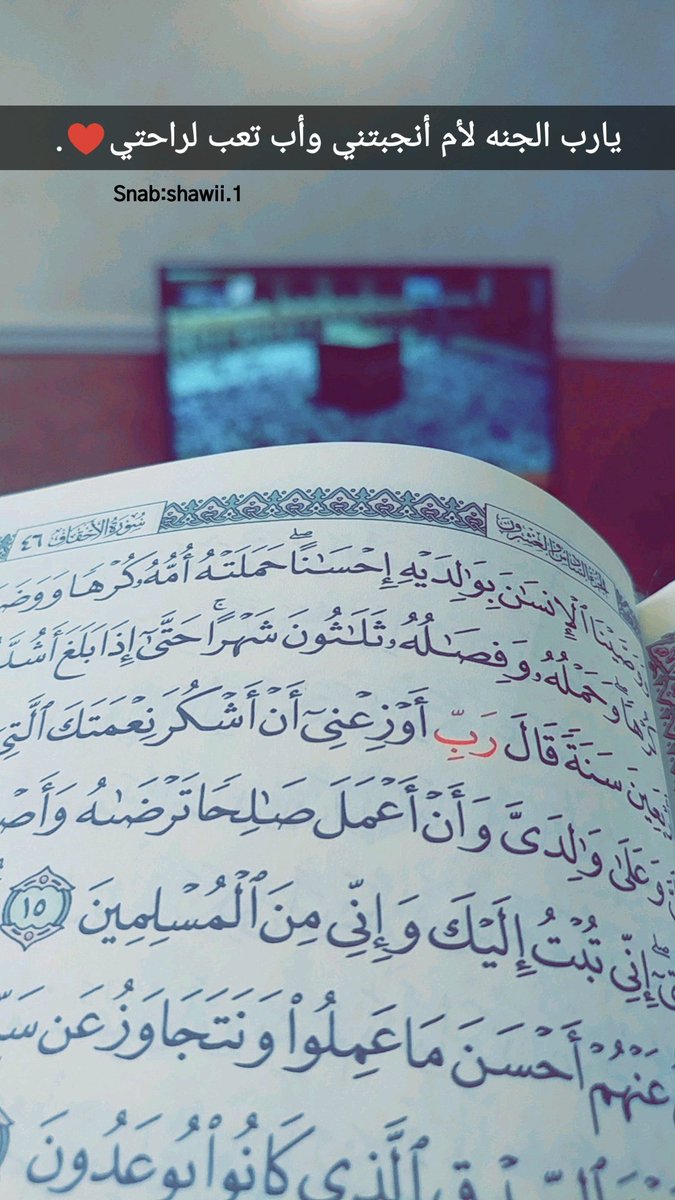 يارب الجنه لأم أنجبتني وأب تعب لراحتي❤️.
Snab:shawii.1
سُورَةُ الأَحْقَافِ ٤٦
ٱلْإِنسَٰنَ بِوَٰلِدَيْهِ إِحْسَٰنًا ۖ حَمَلَتْهُ أُمُّهُۥ كُرْهًا وَوَضَ
وَحَمْلُهُۥ وَفِصَٰلُهُۥ ثَلَٰثُونَ شَهْرًا ۚ حَتَّىٰٓ إِذَا بَلَغَ أَشُدَّ
سَنَةً قَالَ رَبِّ أَوْزِعْنِىٓ أَنْ أَشْكُرَ نِعْمَتَكَ ٱلَّتِىٓ
وَعَلَىٰ وَٰلِدَىَّ وَأَنْ أَعْمَلَ صَٰلِحًا تَرْضَىٰهُ وَأَصْ
إِنِّى تُبْتُ إِلَيْكَ وَإِنِّى مِنَ ٱلْمُسْلِمِينَ ١٥
عَنْهُمْ أَحْسَنَ مَا عَمِلُوا۟ وَنَتَجَاوَزُ عَن سَيِّ
ٱلَّذِى كَانُوا۟ يُوعَدُونَ